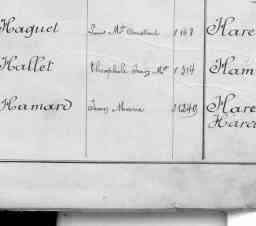 Haguet Louis Mie Constant 1148 Hare
Hallet Théophile Franç Mie 1314 Ham
Hamard Jean Marie 1249 Hare
Harc